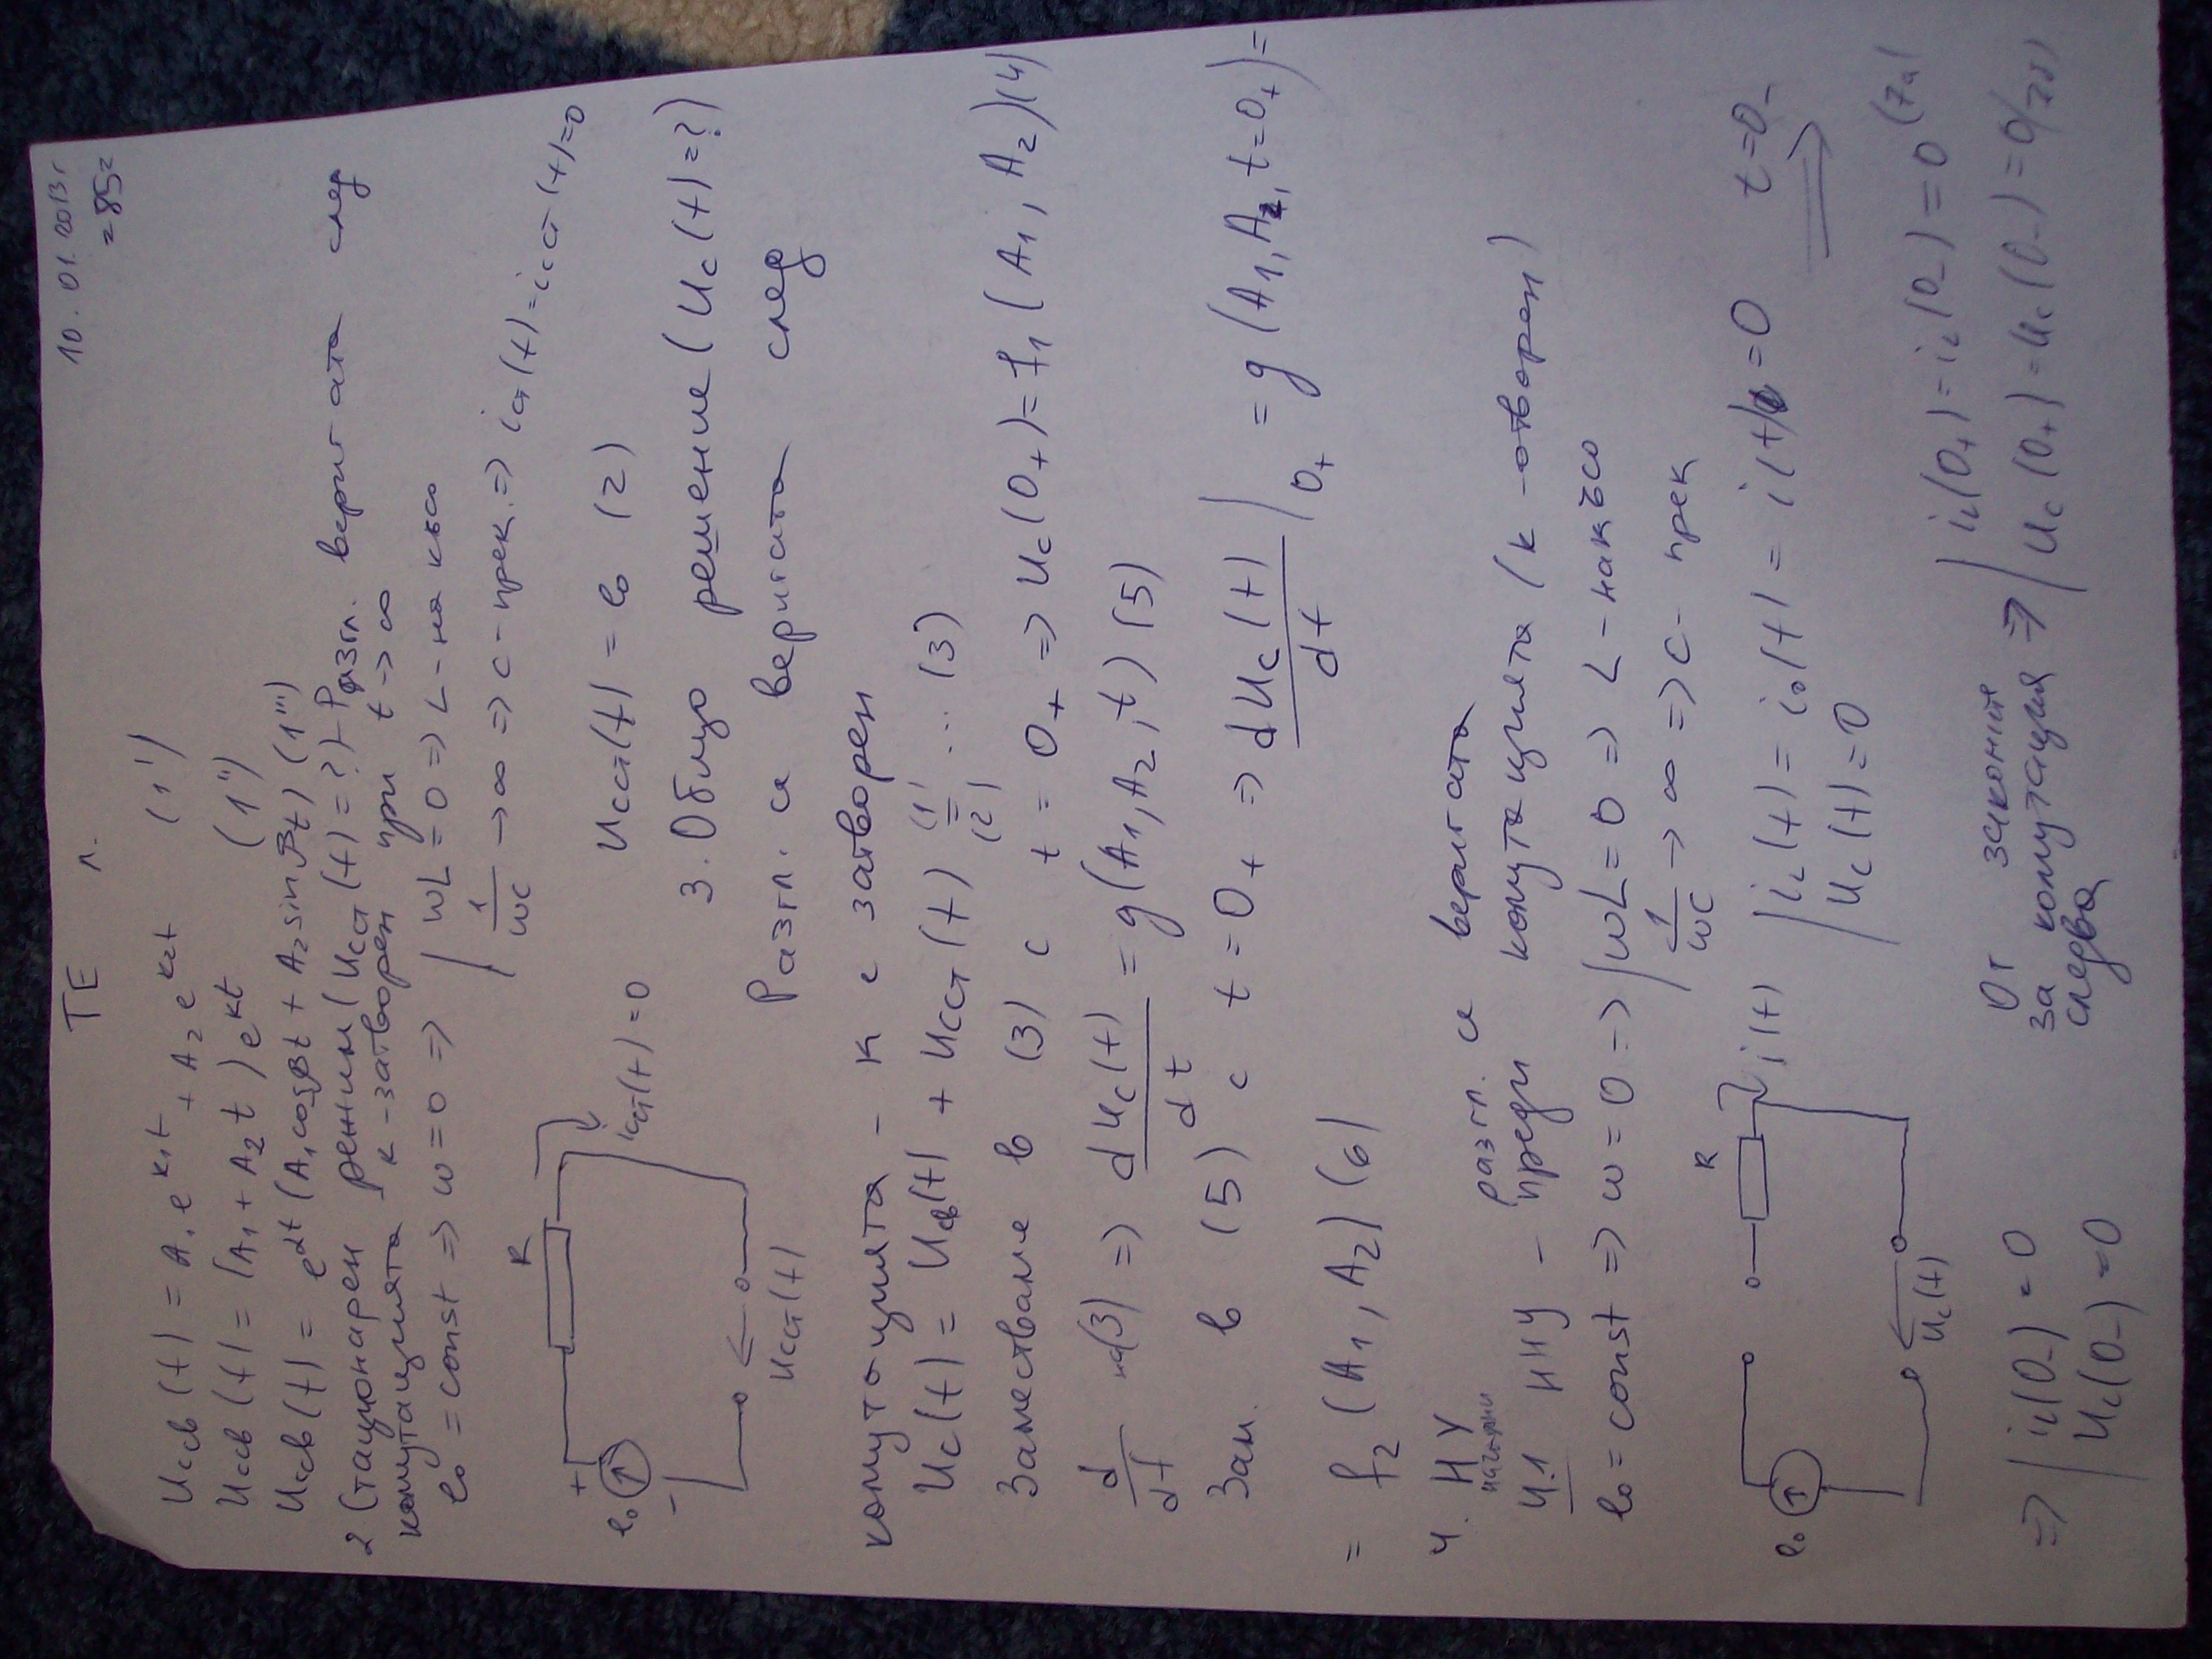 ТЕ л. 10.01.2013г
=85=
Uссв(t) = A₁e^k₁t + A₂e^k₂t (1')
Uссв(t) = (A₁ + A₂t)e^kt (1'')
Uссв(t) = e^αt (A₁cosβt + A₂sinβt) (1''')
2 Стационарен режим (Uсст(t)=?) - Разгл. веригата след
комутацията к-затворен при t→∞
e₀ = const => ω = 0 => | ωL = 0 => L - накъсо
1/ωC → ∞ => C - прек. => iст(t) = iсст(t) = 0
R
+
e₀
-
iст(t)=0
Uсст(t)
Uсст(t) = e₀ (2)
3. Общо решение (Uс(t)=?)
Разгл. се веригата след
комутацията - к е затворен
Uс(t) = Uсв(t) + Uсст(t) (1')= (2) ... (3)
Заместваме в (3) с t = 0₊ => Uс(0₊) = f₁(A₁, A₂) (4)
d/dt на (3) => dUс(t)/dt = g(A₁, A₂, t) (5)
Зам. в (5) с t = 0₊ => dUс(t)/dt |0₊ = g(A₁, A₂, t=0₊) =
= f₂(A₁, A₂) (6)
4. НУ
4.1 ННУ - разгл. се веригата
преди комутацията (к-отворен)
e₀ = const => ω = 0 => | ωL = 0 => L - накъсо
1/ωC → ∞ => C - прек
R
i(t)
e₀
Uс(t)
| iL(t) = i₀(t) = i(t) = 0 t=0₋
Uс(t) = 0 =>
=> | iL(0₋) = 0
Uс(0₋) = 0
От законите
за комутация => | iL(0₊) = iL(0₋) = 0 (7а)
следва Uс(0₊) = Uс(0₋) = 0 (7б)